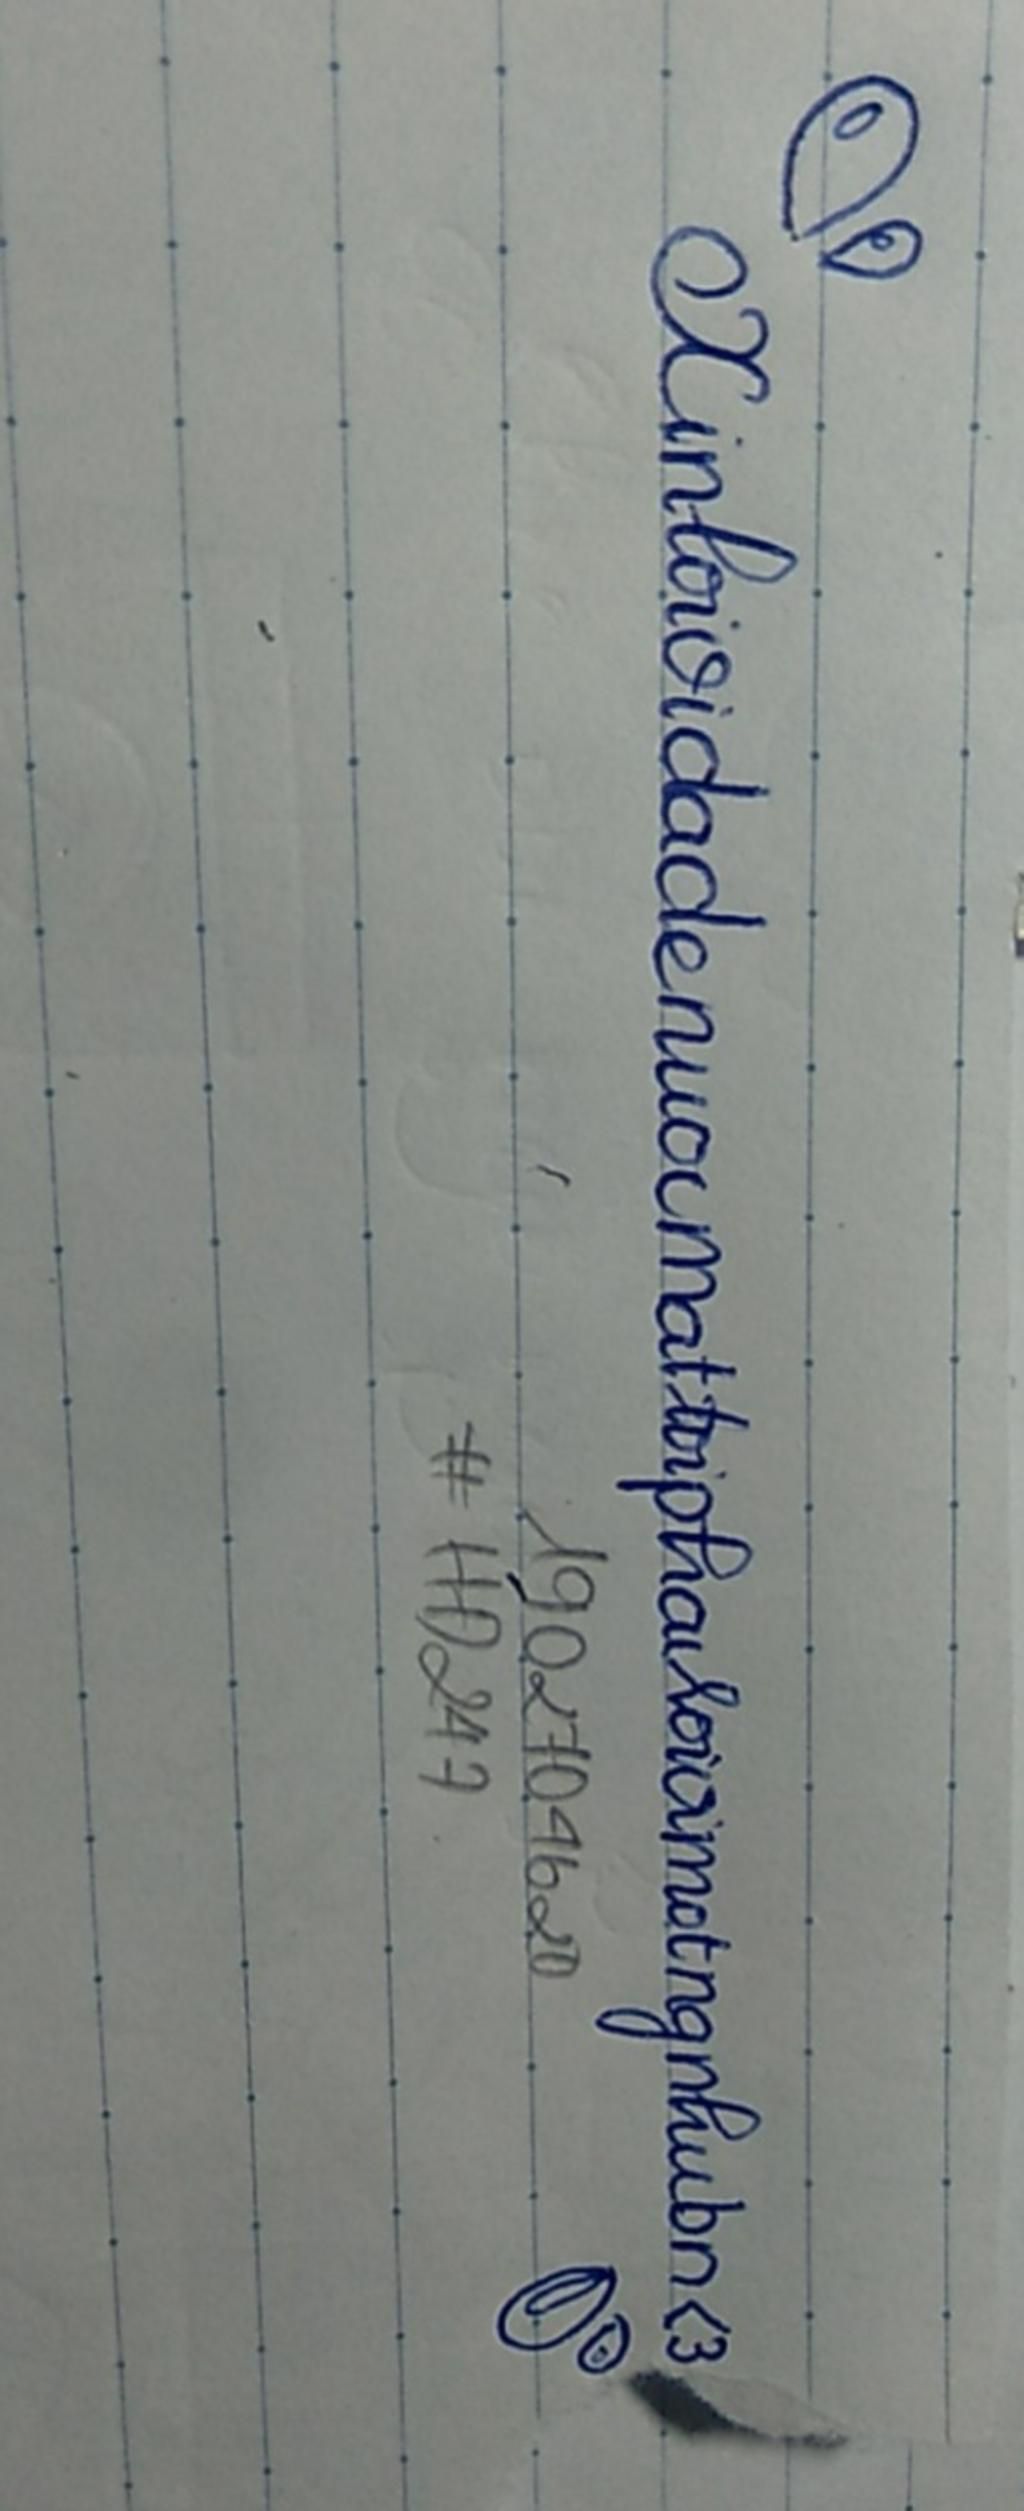 Xinloividadenuocmattoiphairoivimotngnhubn<3
1902704620
#HD247